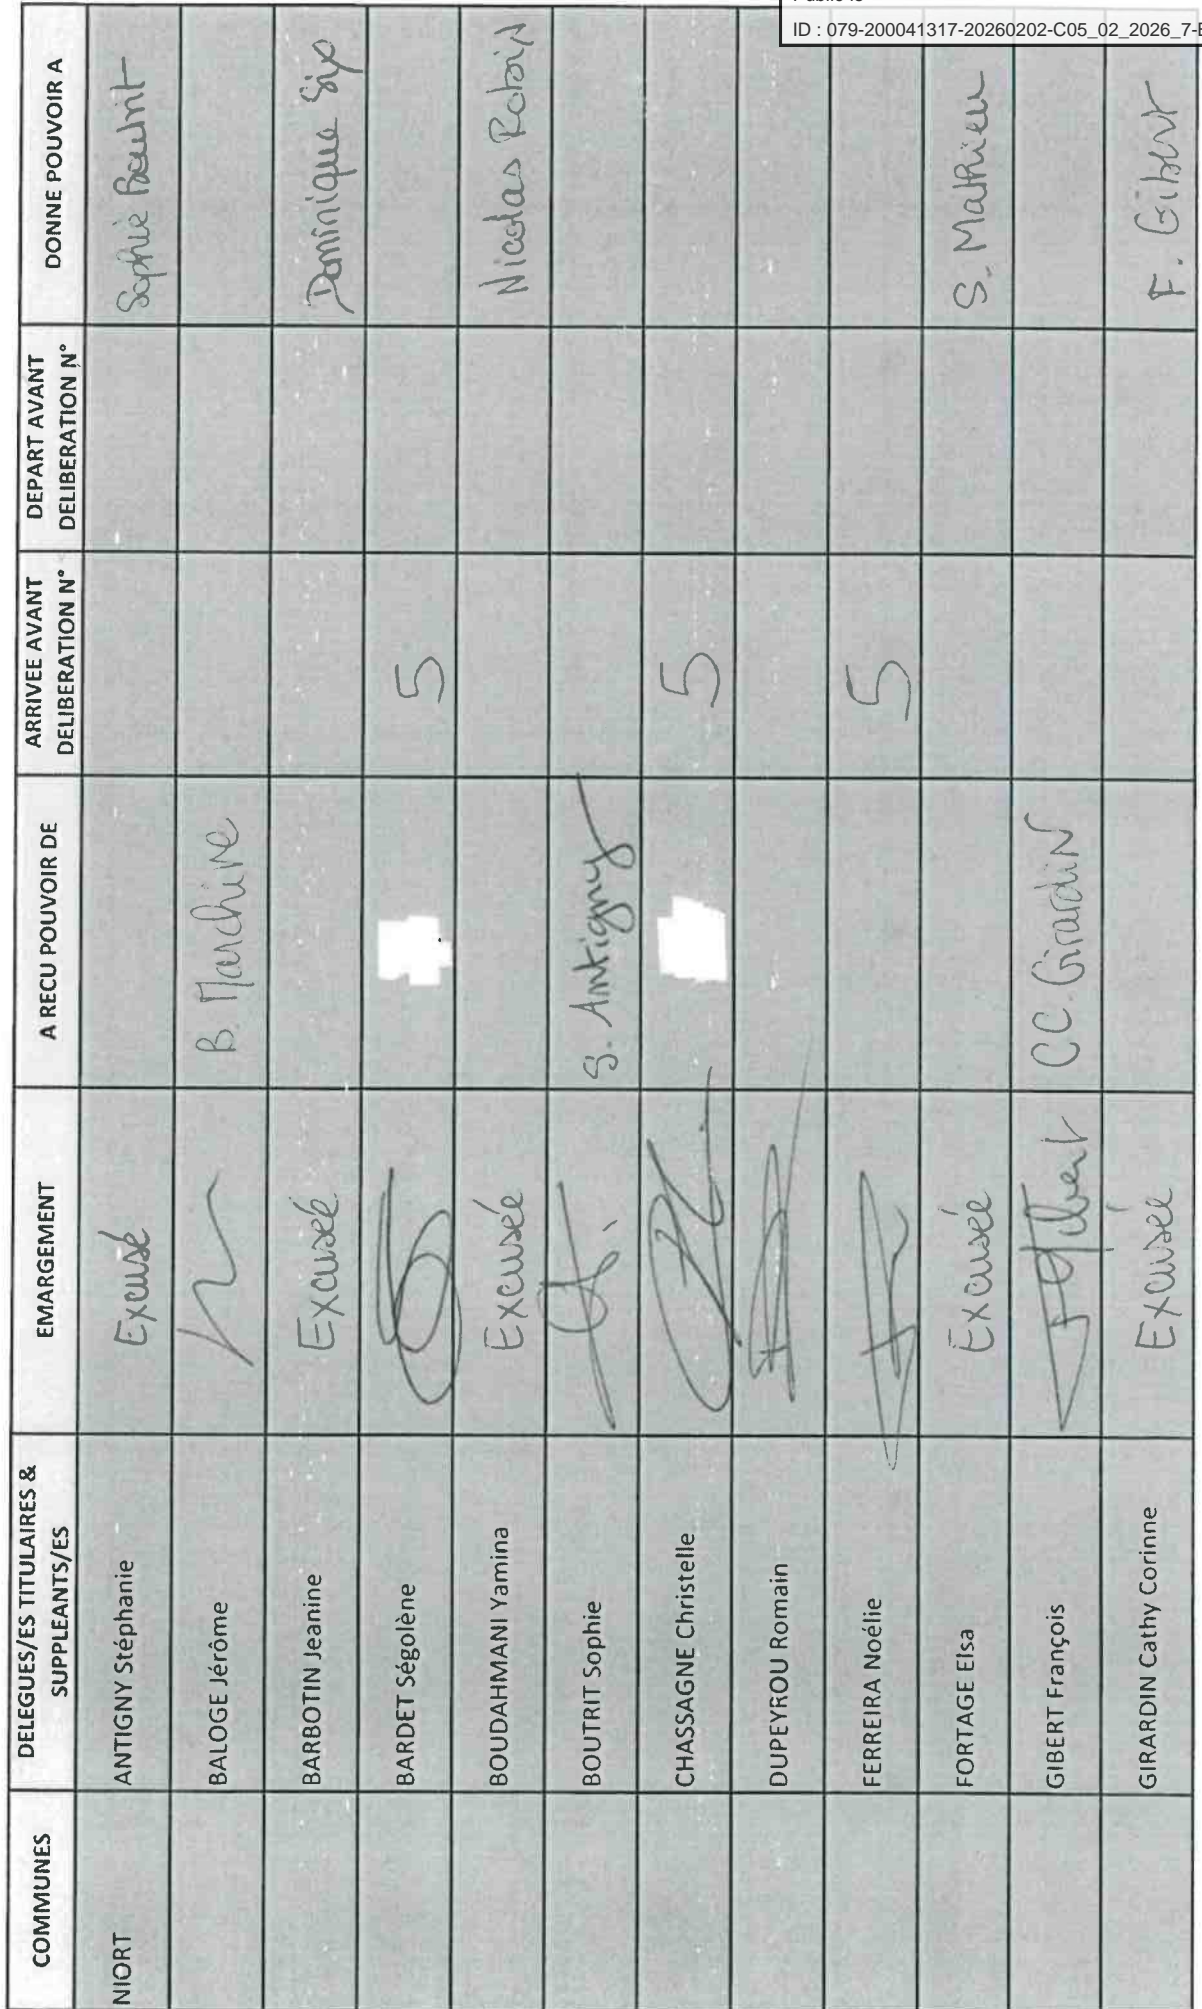 Publié le
ID : 079-200041317-20260202-C05_02_2026_7-
COMMUNES DELEGUES/ES TITULAIRES & SUPPLEANTS/ES EMARGEMENT A RECU POUVOIR DE ARRIVEE AVANT DELIBERATION N° DEPART AVANT DELIBERATION N° DONNE POUVOIR A
NIORT ANTIGNY Stéphanie Excusé Sophie Boutrit
BALOGE Jérôme B. Marchive
BARBOTIN Jeanine Excusée Dominique Six
BARDET Ségolène 5
BOUDAHMANI Yamina Excusée Nicolas Robin
BOUTRIT Sophie S. Antigny
CHASSAGNE Christelle 5
DUPEYROU Romain
FERREIRA Noélie 5
FORTAGE Elsa Excusée S. Mathieu
GIBERT François CC. Girardin
GIRARDIN Cathy Corinne Excusée F. Gibert